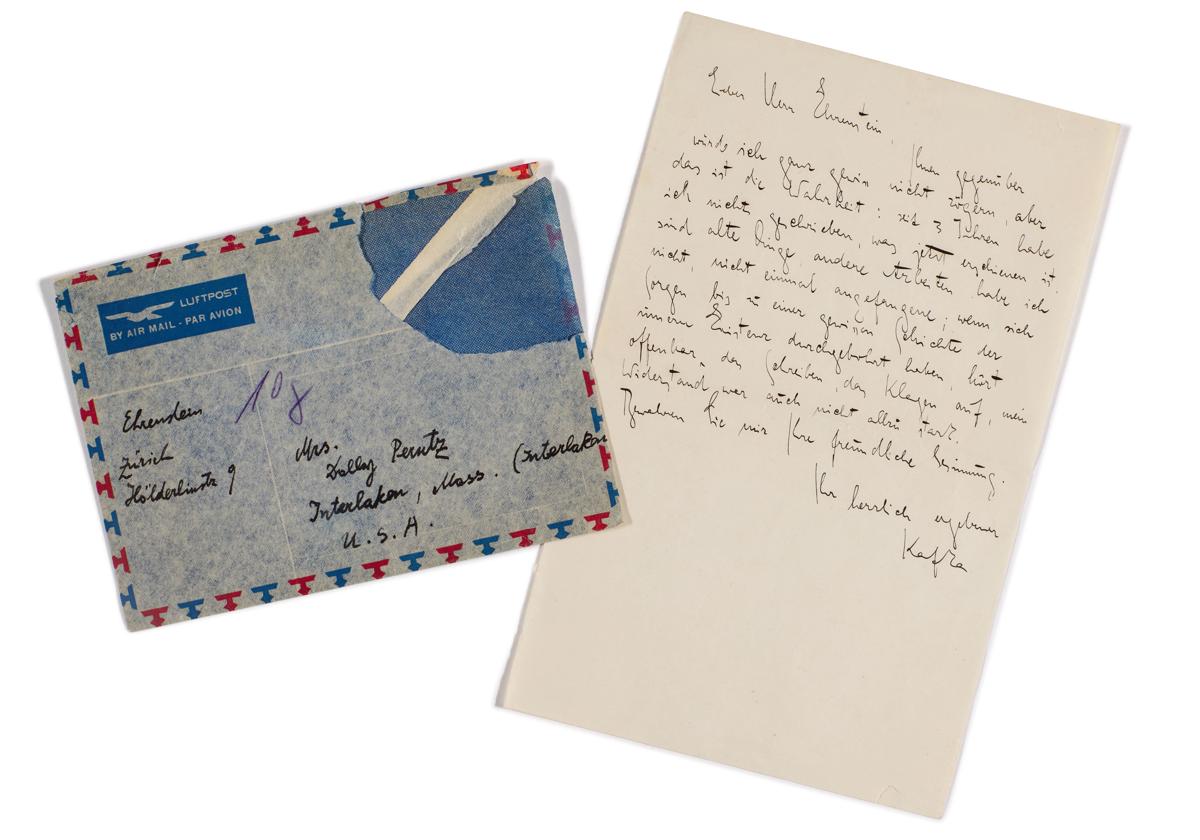 LUFTPOST
BY AIR MAIL - PAR AVION
10g
Ehrenstein
Zürich
Hölderlinstr 9
Mrs.
Dolly Perutz
Interlaken, Mass. (Interlaken
U.S.A.
Lieber Herr Ehrenstein,
Ihnen gegenüber
würde ich ganz gewiss nicht zögern, aber
das ist die Wahrheit: seit 3 Jahren habe
ich nichts geschrieben, was jetzt erschienen ist
sind alte Dinge, andere Arbeiten habe ich
nicht, nicht einmal angefangene; wenn sich
Sorgen bis zu einer gewissen Schichte der
innern Existenz durchgebohrt haben, hört
offenbar das Schreiben, das Klagen auf, mein
Widerstand war auch nicht allzu stark.
Bewahren Sie mir Ihre freundliche Gesinnung.
Ihr herzlich ergebener
Kafka